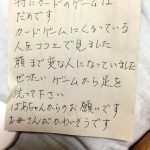 特にカードのゲームは
だめです
カードゲームにくるっている
人をココエで見ました
顔まで変な人になっていました
ぜったいゲームから足を
洗って下さい
ばあちゃんからのお願いです
お母さんがかわいそうです